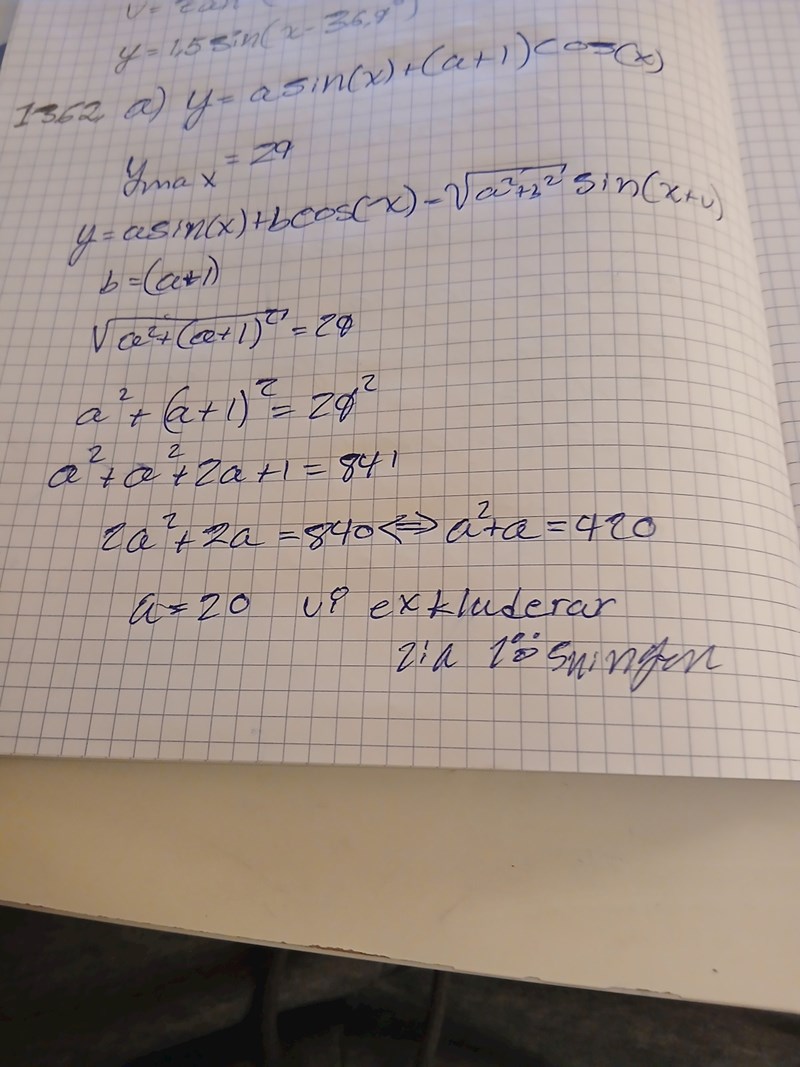 y = 1,5 sin(x - 36,9°)
1362 a) y = a sin(x) + (a+1) cos(x)
y max = 29
y = a sin(x) + b cos(x) - √a²+b² sin(x+v)
b = (a+1)
√a²+(a+1)² = 29
a² + (a+1)² = 29²
a² + a² + 2a + 1 = 841
2a² + 2a = 840 ⇔ a² + a = 420
a = 20 vi exkluderar